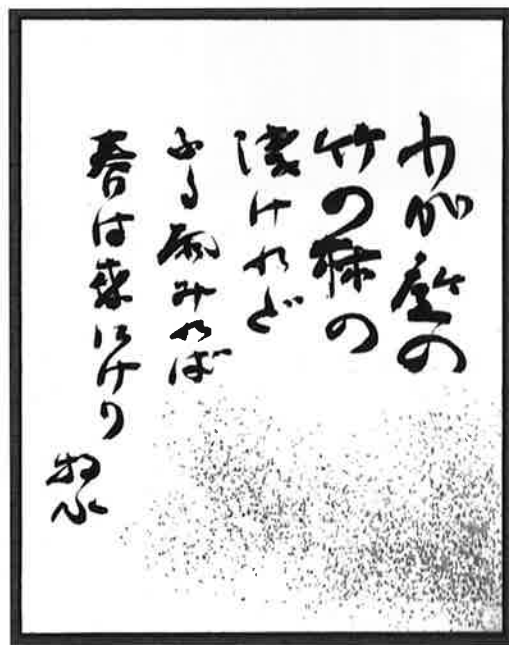 わが庭の
竹の林の
浅けれど
ふる雨みれば
春は来にけり
牧水